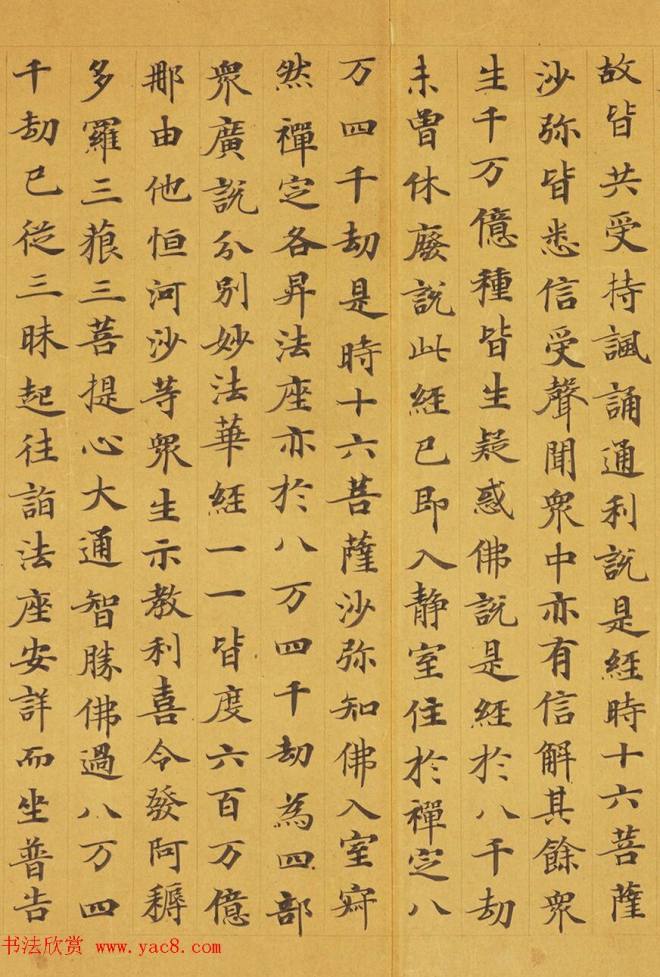 故皆共受持諷誦通利說是經時十六菩薩
沙弥皆悉信受聲聞衆中亦有信解其餘衆
生千万億種皆生疑惑佛說是經於八千劫
未曾休廢說此經已即入静室住於禪定八
万四千劫是時十六菩薩沙弥知佛入室寂
然禪定各昇法座亦於八万四千劫為四部
衆廣說分別妙法華經一一皆度六百万億
那由他恒河沙等衆生示教利喜令發阿耨
多羅三藐三菩提心大通智勝佛過八万四
千劫已從三昧起往詣法座安詳而坐普告
书法欣赏 www.yac8.com